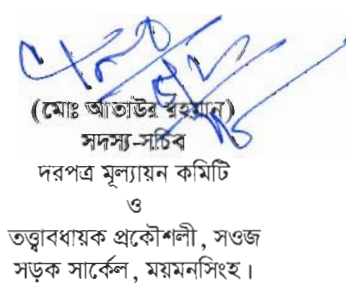 (মোঃ আতাউর রহমান)
সদস্য-সচিব
দরপত্র মূল্যায়ন কমিটি
ও
তত্ত্বাবধায়ক প্রকৌশলী, সওজ
সড়ক সার্কেল, ময়মনসিংহ।